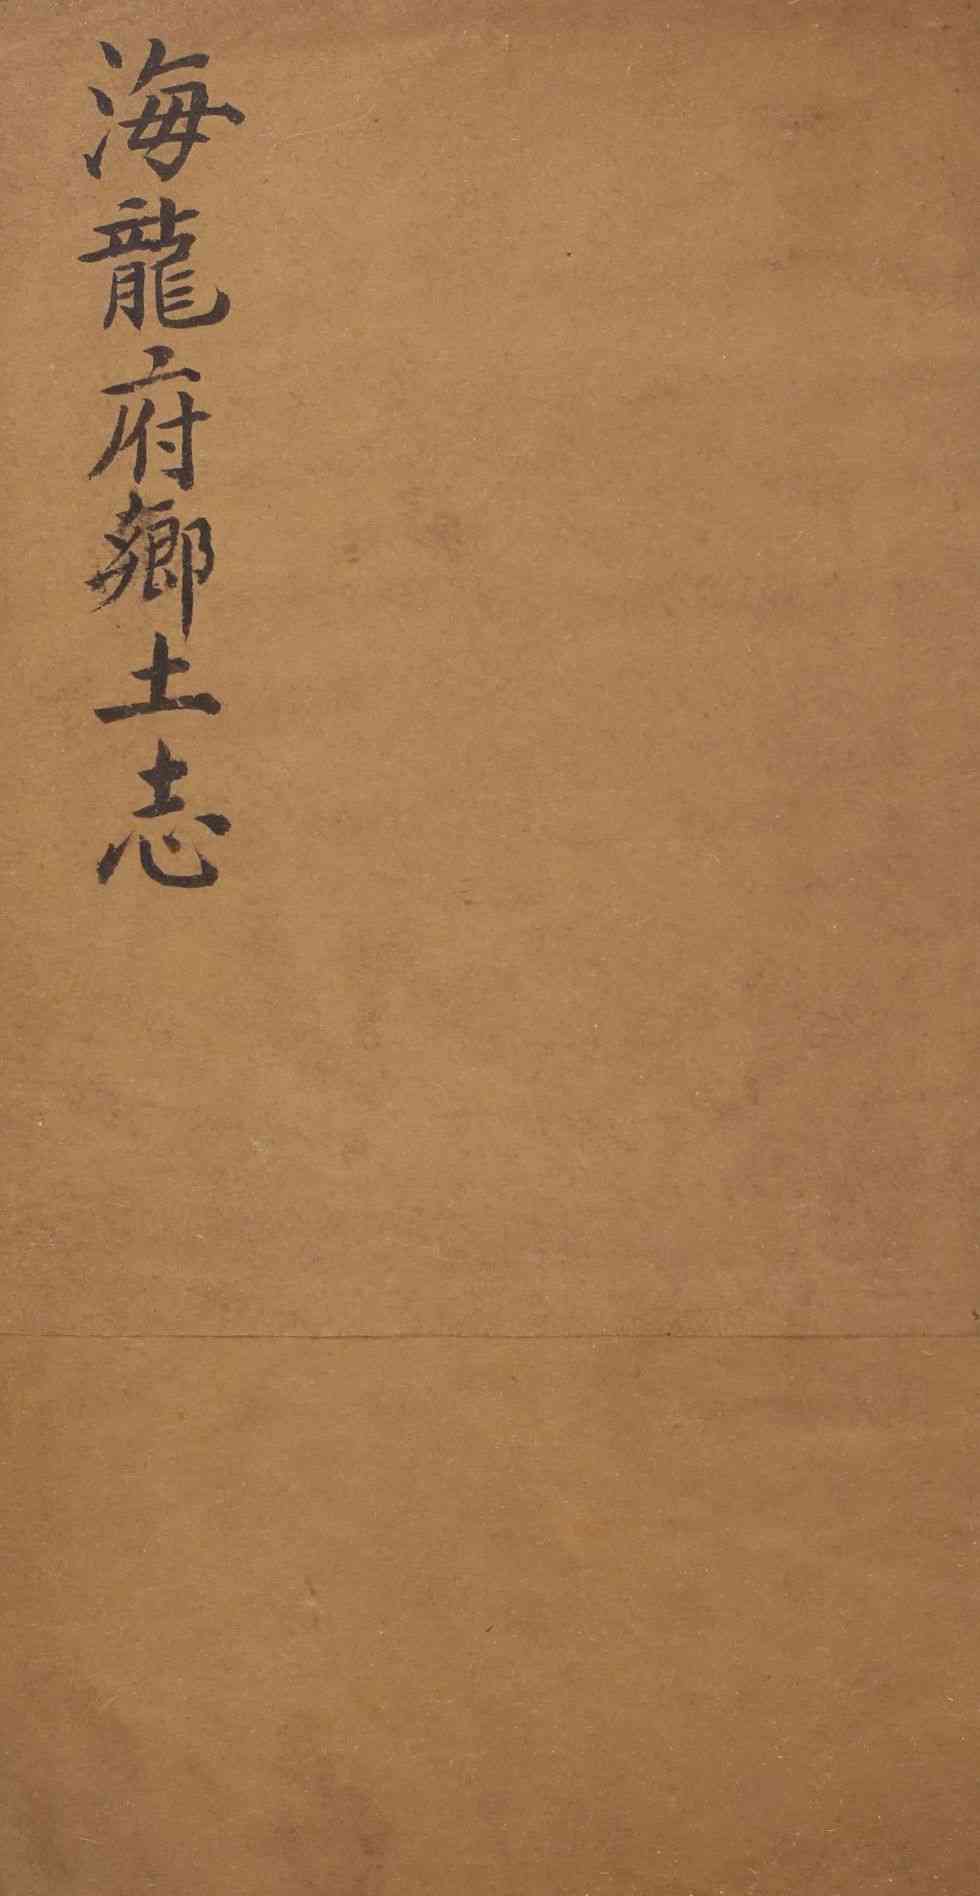 海龍府鄉土志